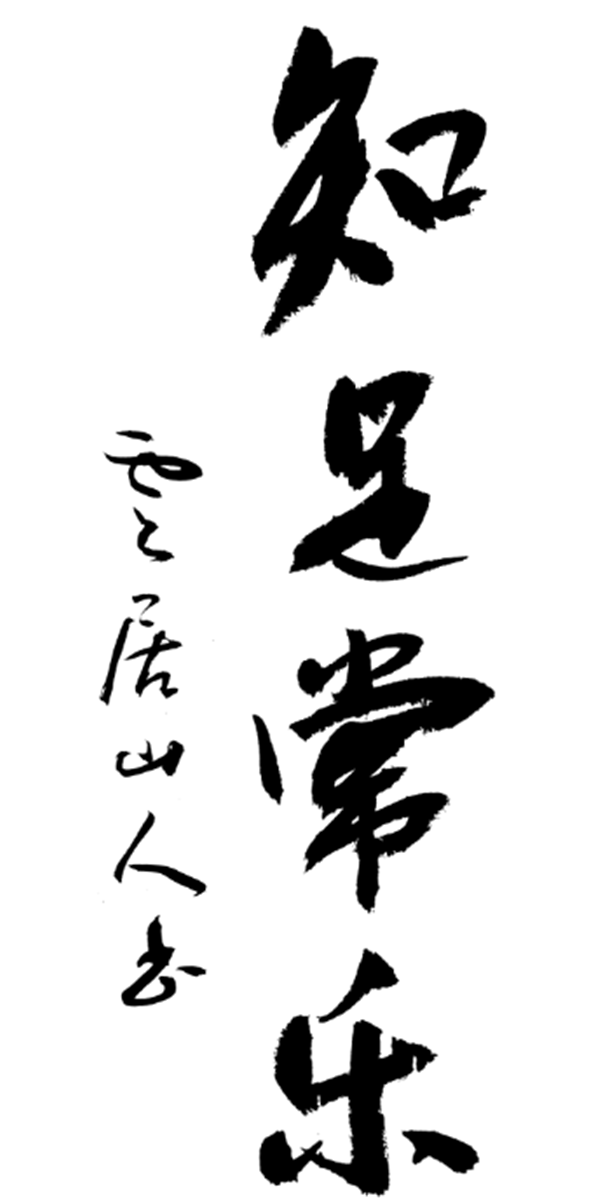 知足常乐
雲居山人书